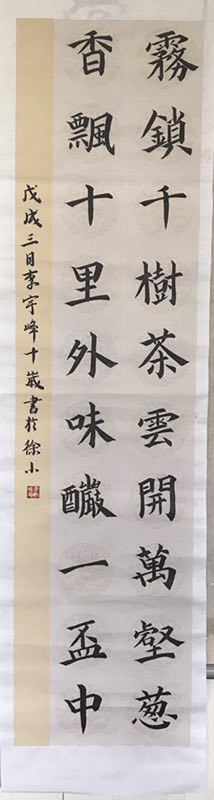 霧鎖千樹茶雲開萬壑葱
香飄十里外味釅一盃中
戊戌三月李宇峰十歲書於徐小